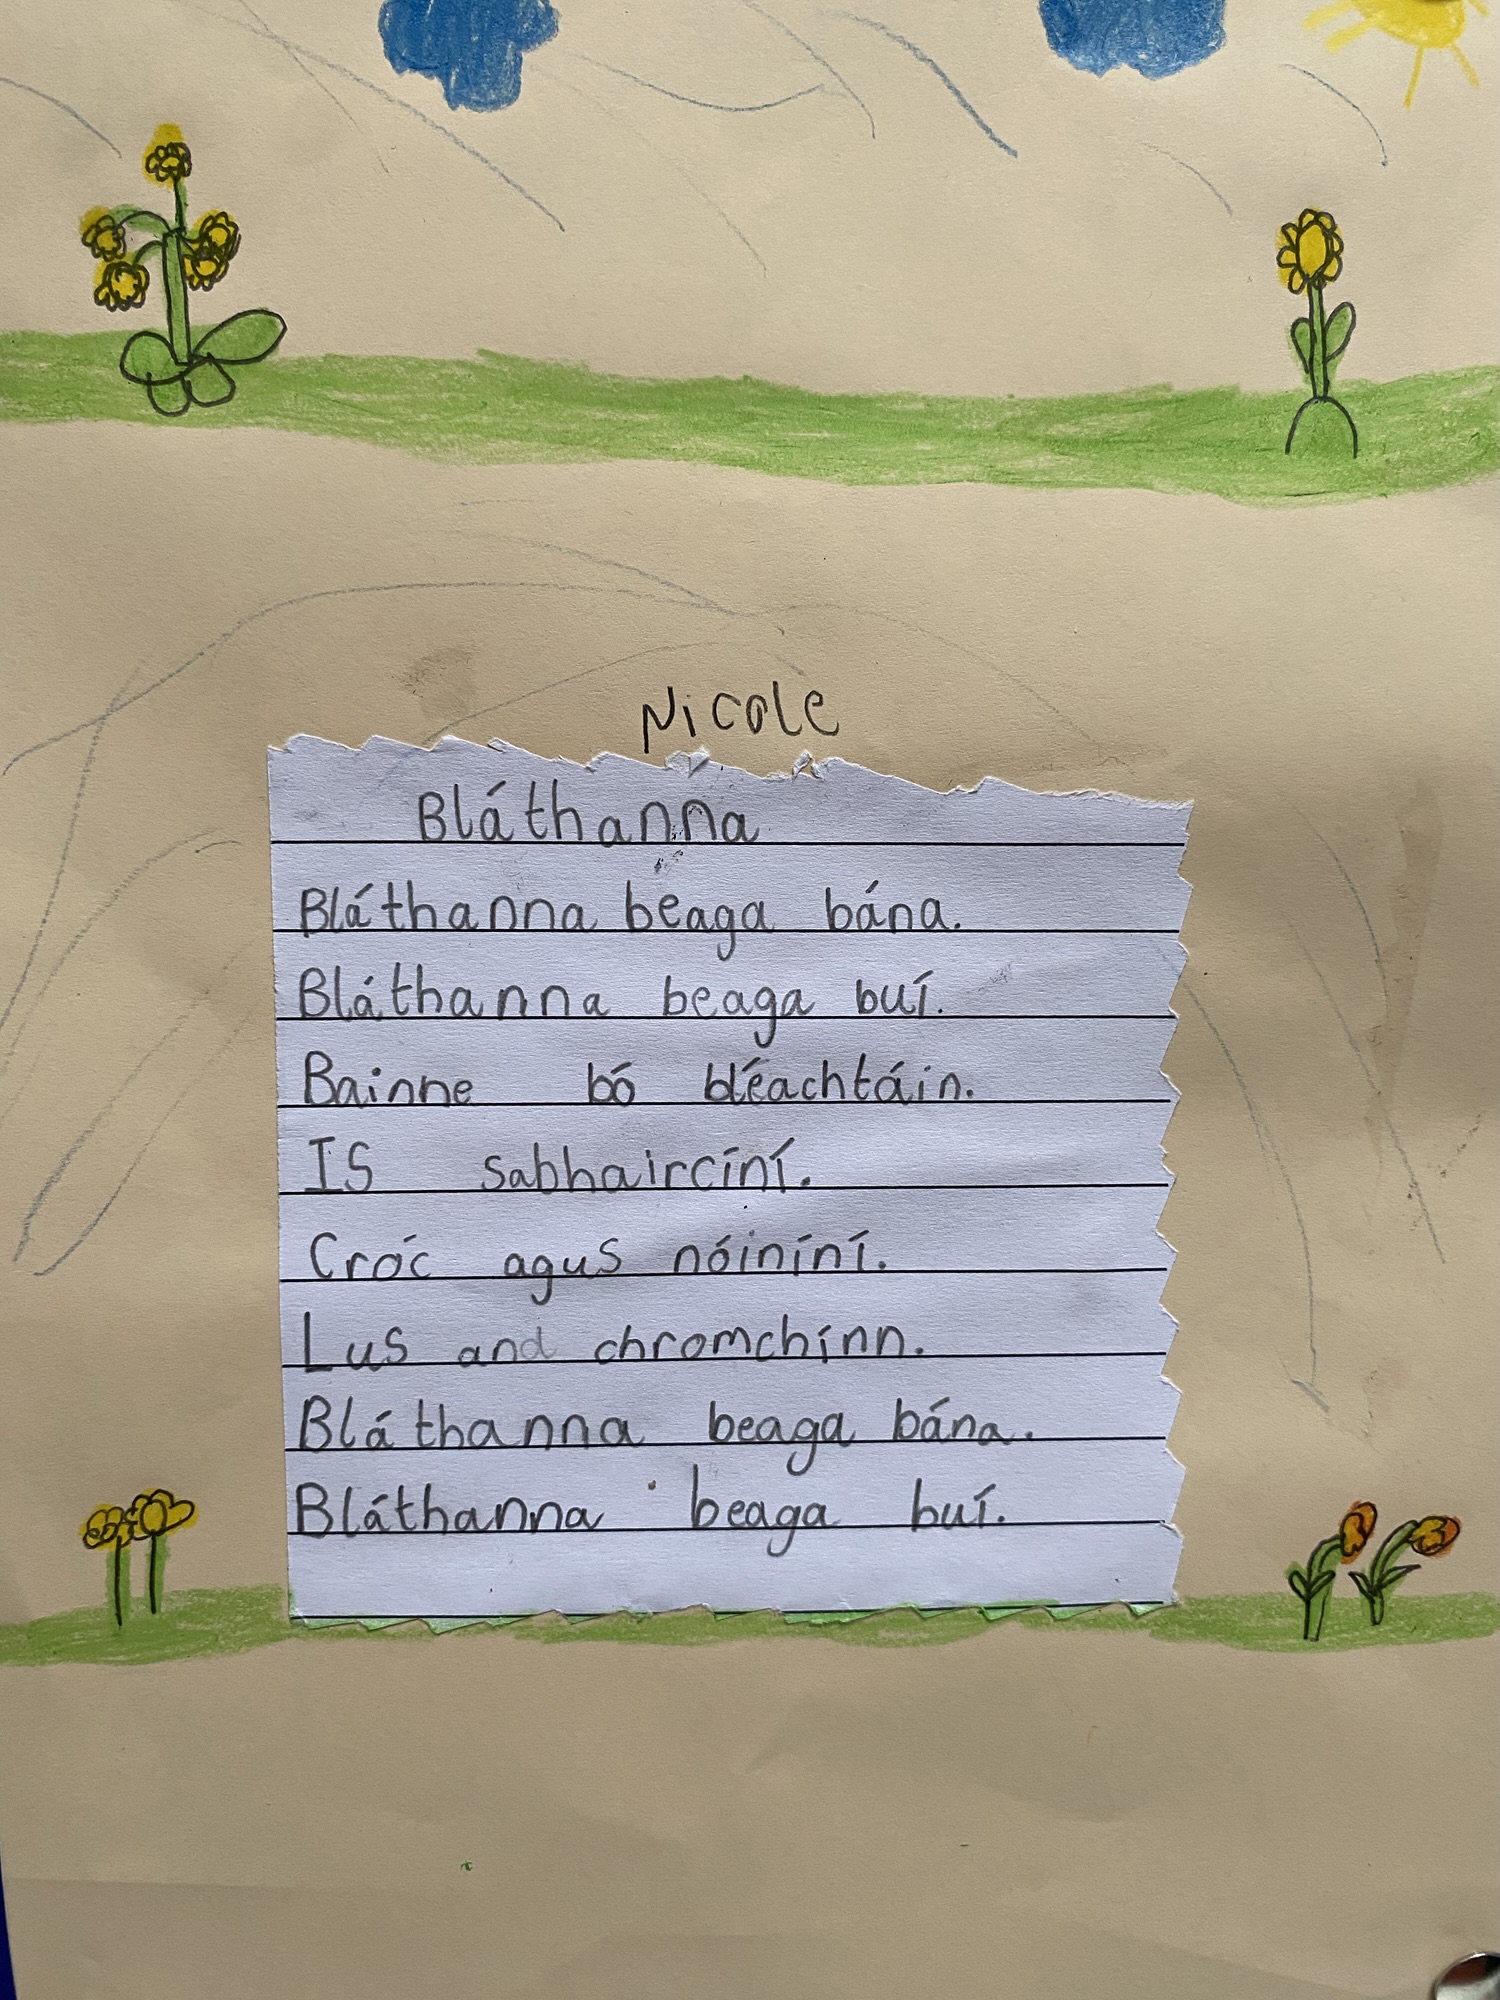 Nicole
Bláthanna
Bláthanna beaga bána.
Bláthanna beaga buí.
Bainne bó bléachtáin.
Is sabhaircíní.
Cróc agus nóiníní.
Lus and chromchinn.
Bláthanna beaga bána.
Bláthanna beaga buí.